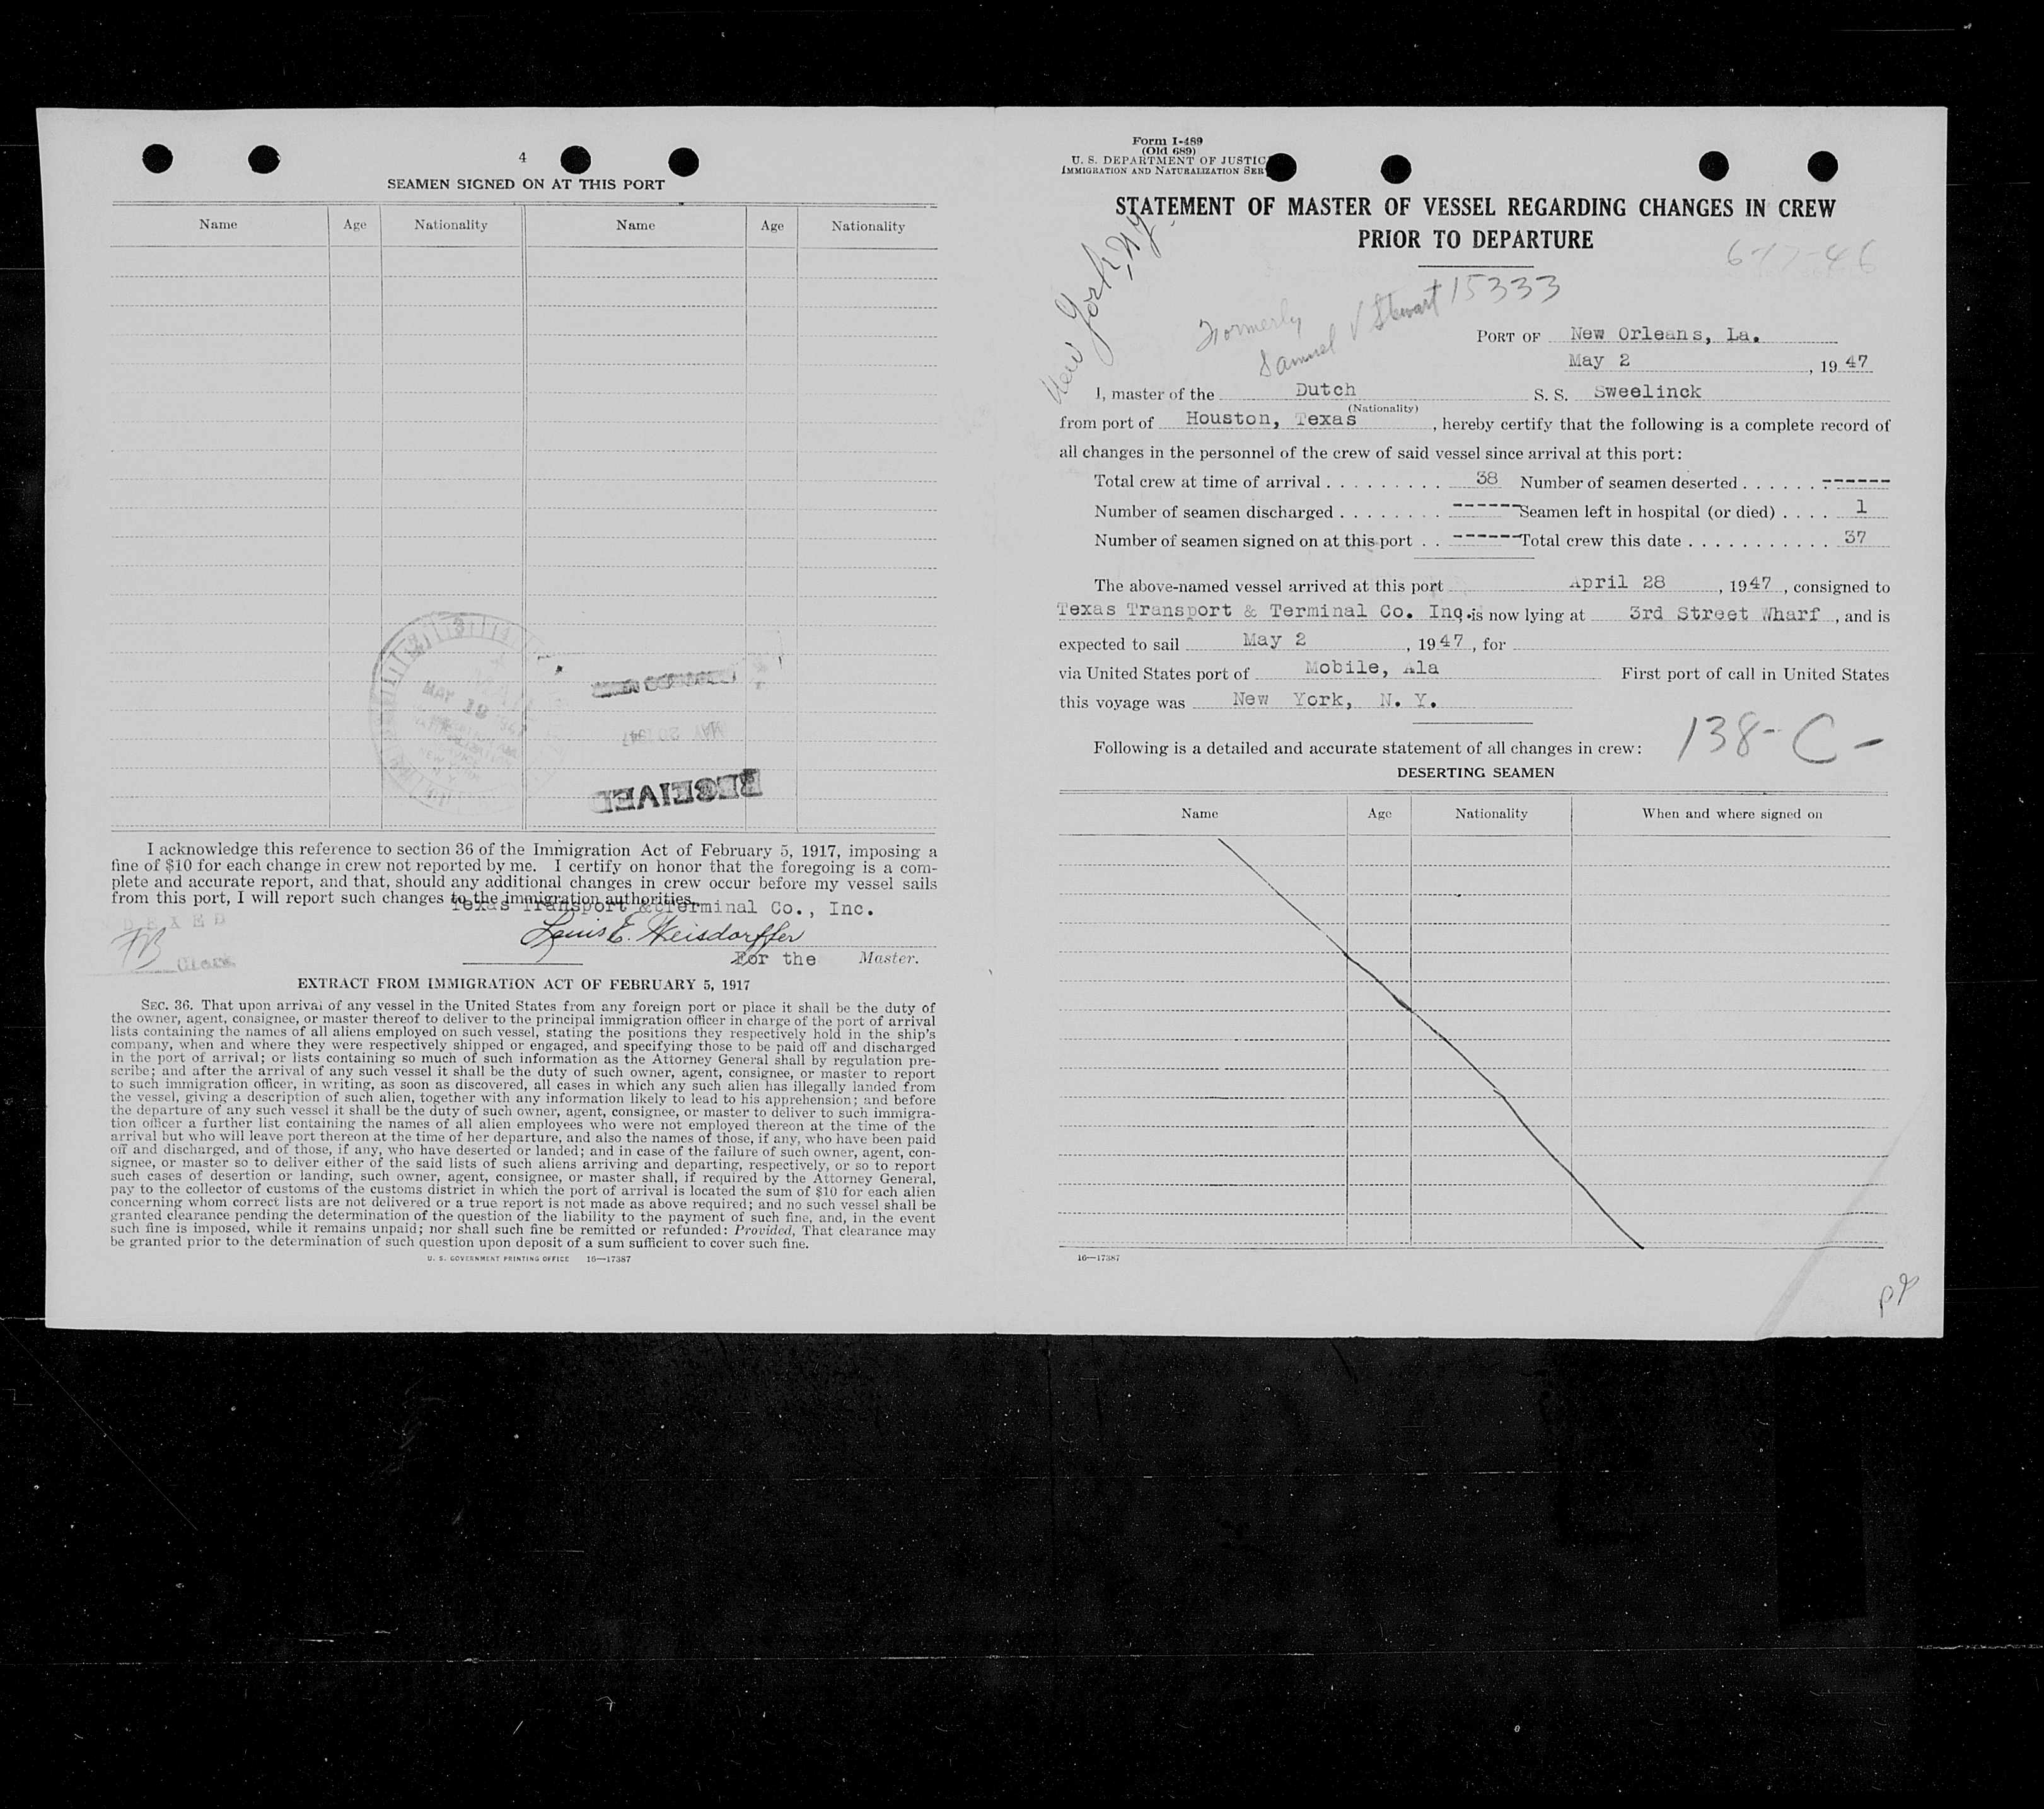 4
SEAMEN SIGNED ON AT THIS PORT
Name Age Nationality Name Age Nationality
MAY 19
MAY 20 1947
RECEIVED
I acknowledge this reference to section 36 of the Immigration Act of February 5, 1917, imposing a
fine of $10 for each change in crew not reported by me. I certify on honor that the foregoing is a com-
plete and accurate report, and that, should any additional changes in crew occur before my vessel sails
from this port, I will report such changes to the immigration authorities.
Texas Transport & Terminal Co., Inc.
Louis E. Weisdorffer
For the Master.
FB Clerk
EXTRACT FROM IMMIGRATION ACT OF FEBRUARY 5, 1917
SEC. 36. That upon arrival of any vessel in the United States from any foreign port or place it shall be the duty of
the owner, agent, consignee, or master thereof to deliver to the principal immigration officer in charge of the port of arrival
lists containing the names of all aliens employed on such vessel, stating the positions they respectively hold in the ship's
company, when and where they were respectively shipped or engaged, and specifying those to be paid off and discharged
in the port of arrival; or lists containing so much of such information as the Attorney General shall by regulation pre-
scribe; and after the arrival of any such vessel it shall be the duty of such owner, agent, consignee, or master to report
to such immigration officer, in writing, as soon as discovered, all cases in which any such alien has illegally landed from
the vessel, giving a description of such alien, together with any information likely to lead to his apprehension; and before
the departure of any such vessel it shall be the duty of such owner, agent, consignee, or master to deliver to such immigra-
tion officer a further list containing the names of all alien employees who were not employed thereon at the time of the
arrival but who will leave port thereon at the time of her departure, and also the names of those, if any, who have been paid
off and discharged, and of those, if any, who have deserted or landed; and in case of the failure of such owner, agent, con-
signee, or master so to deliver either of the said lists of such aliens arriving and departing, respectively, or so to report
such cases of desertion or landing, such owner, agent, consignee, or master shall, if required by the Attorney General,
pay to the collector of customs of the customs district in which the port of arrival is located the sum of $10 for each alien
concerning whom correct lists are not delivered or a true report is not made as above required; and no such vessel shall be
granted clearance pending the determination of the question of the liability to the payment of such fine, and, in the event
such fine is imposed, while it remains unpaid; nor shall such fine be remitted or refunded: Provided, That clearance may
be granted prior to the determination of such question upon deposit of a sum sufficient to cover such fine.
U. S. GOVERNMENT PRINTING OFFICE 16—17387
Form I-489
(Old 689)
U. S. DEPARTMENT OF JUSTIC
IMMIGRATION AND NATURALIZATION SER
STATEMENT OF MASTER OF VESSEL REGARDING CHANGES IN CREW
PRIOR TO DEPARTURE
New York, N.Y.
6-17-46
Formerly
Samuel V Stewart 15333
PORT OF New Orleans, La.
May 2, 1947
I, master of the Dutch S. S. Sweelinck
(Nationality)
from port of Houston, Texas, hereby certify that the following is a complete record of
all changes in the personnel of the crew of said vessel since arrival at this port:
Total crew at time of arrival . . . . . . . . . 38 Number of seamen deserted . . . . . . . ------
Number of seamen discharged . . . . . . . . ------ Seamen left in hospital (or died) . . . . 1
Number of seamen signed on at this port . . ------ Total crew this date . . . . . . . . . . . . 37
The above-named vessel arrived at this port April 28, 1947, consigned to
Texas Transport & Terminal Co. Inc. is now lying at 3rd Street Wharf, and is
expected to sail May 2, 1947, for
via United States port of Mobile, Ala First port of call in United States
this voyage was New York, N. Y.
138-C-
Following is a detailed and accurate statement of all changes in crew:
DESERTING SEAMEN
Name Age Nationality When and where signed on
16—17387